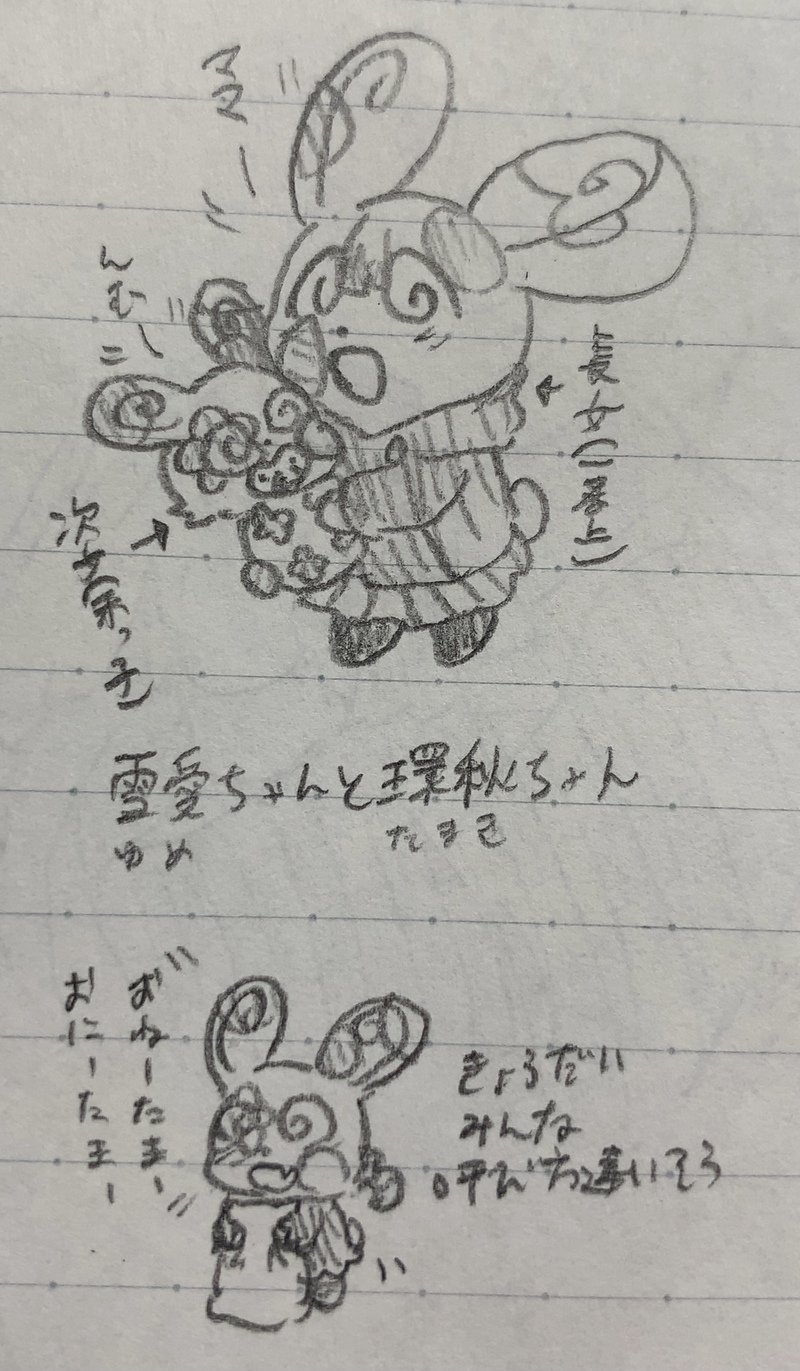 ママー
んむー
長女(一番上)
次女末っ子
雪愛ちゃんと環秋ちゃん
ゆめ
たまき
おねーたまー
おにーたまー
きょうだい
みんな
呼び方違いそう